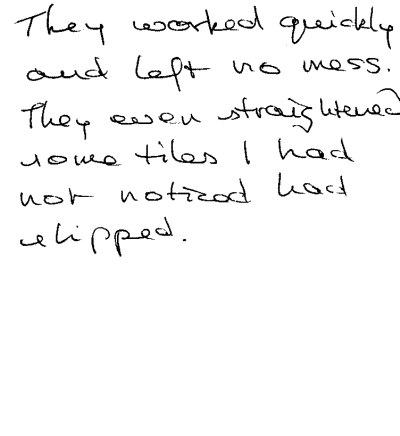 They worked quickly
and left no mess.
They even straightened
some tiles I had
not noticed had
slipped.